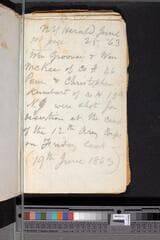 N Y Herald June
25 '63
Wm Groover & Wm
McKee of Co A 46
Penn & Christopher
Krumbart of Co A 13th
N J were shot for
desertion at the camp
of the 12th Army Corps
on Friday last -
19th June 1863)